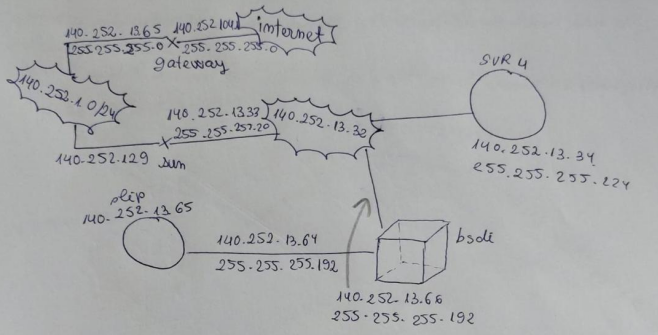 140.252.13.65
140.252.104.1
internet
255.255.255.0
255.255.255.0
gateway
140.252.1.0/24
SVR 4
140.252.13.33
255.255.257.20
140.252.13.32
140.252.129
sun
140.252.13.34
255.255.255.224
slip
140.252.13.65
140.252.13.64
255.255.255.192
bsdi
140.252.13.66
255.255.255.192